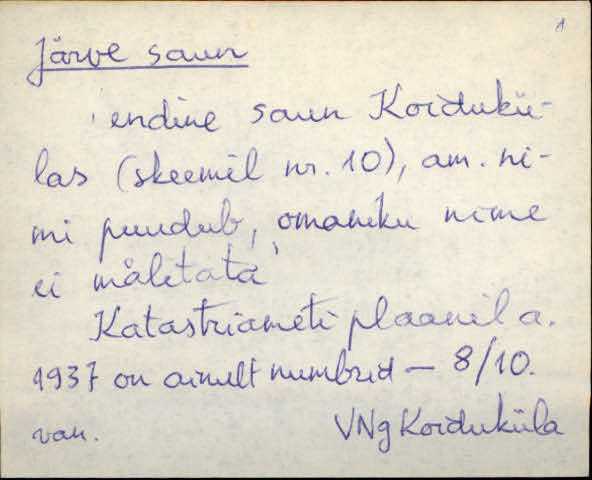 1
Järve saun
endine saun Koidukü-
las (skeemil nr. 10), am. ni-
mi puudub, omaniku nime
ei mäletata
Katastriameti plaanil a.
1937 on ainult numbrid — 8/10.
van. VNg Koiduküla